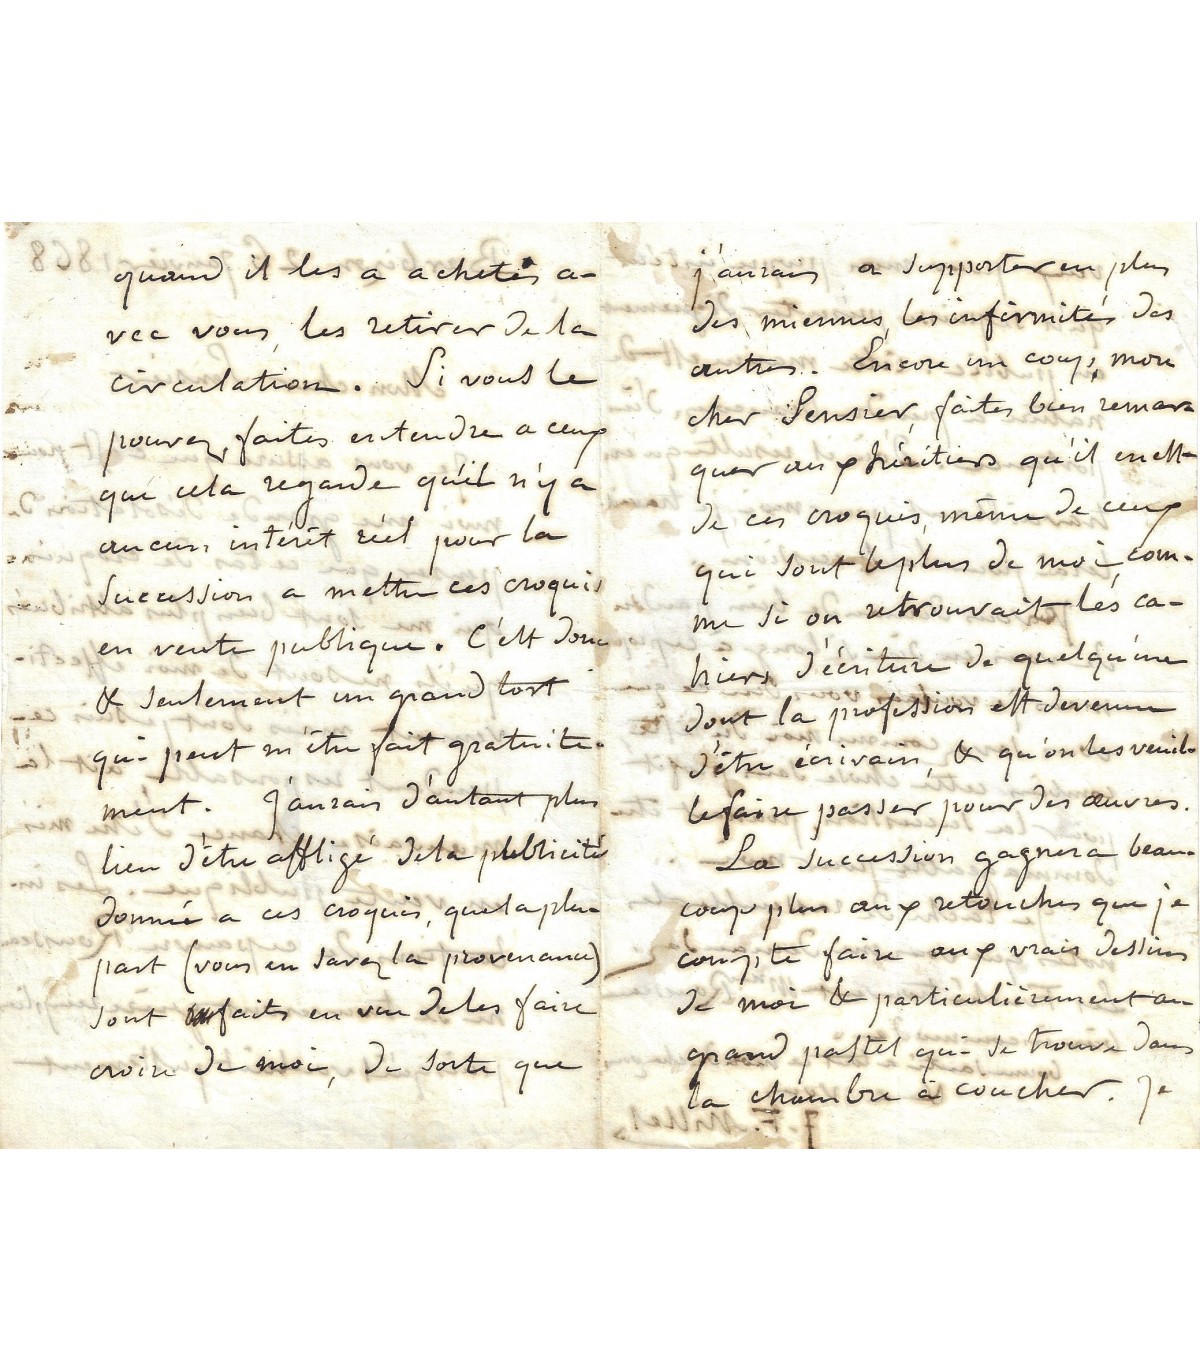 quand il les a achetés a-
vec vous, les retirer de la
circulation. Si vous le
pouvez, faites entendre a ceux
que cela regarde qu'il n'y a
aucun intérêt réel pour la
succession a mettre ces croquis
en vente publique. C'est donc
& seulement un grand tort
qui peut m'être fait gratuite-
ment. J'aurais d'autant plus
lieu d'être affligé de la publicité
donnée a ces croquis, que la plu-
part (vous en savez la provenance)
sont faits en vue de les faire
croire de moi, de sorte que
j'aurais a supporter en plus
des miennes, les infirmités des
autres. Encore un coup, mon
cher Sensier, faites bien remar-
quer aux héritiers qu'il en est
de ces croquis, même de ceux
qui sont le plus de moi, com-
me si on retrouvait les ca-
hiers d'écriture de quelqu'une
dont la profession est devenue
d'être écrivain, & qu'on les veuil-
le faire passer pour des œuvres.
La succession gagnera beau-
coup plus aux retouches que je
compte faire aux vrais dessins
de moi & particulièrement au
grand pastel qui se trouve dans
la chambre à coucher. Je